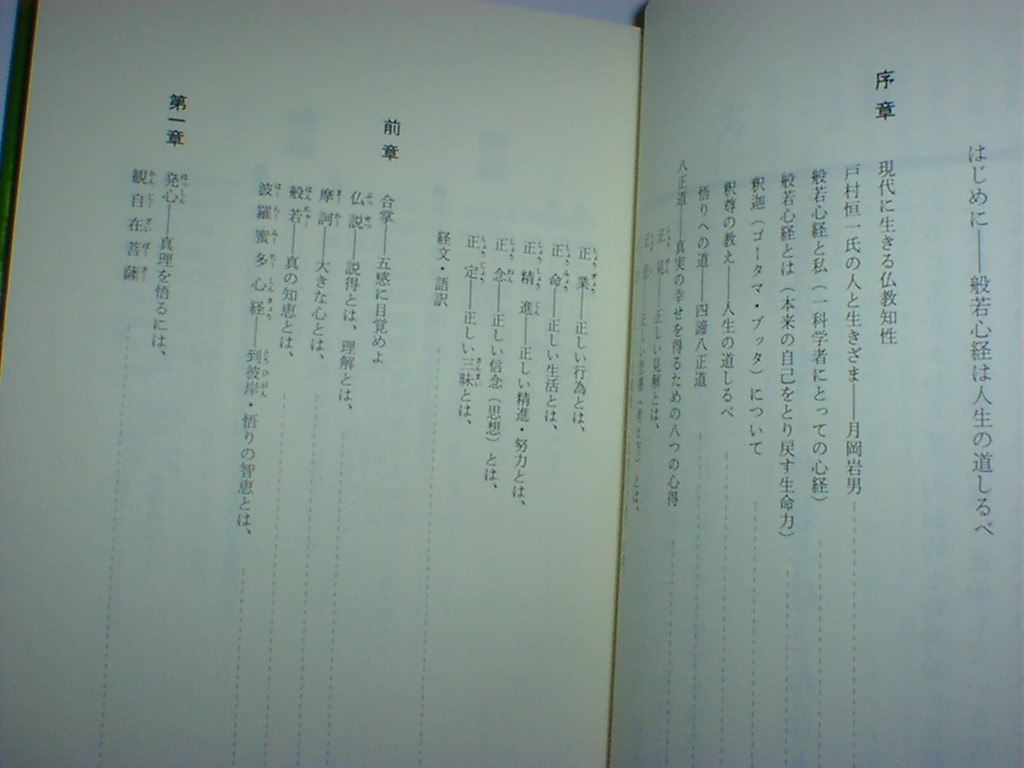 はじめに――般若心経は人生の道しるべ
序章
現代に生きる仏教知性
戸村恒一氏の人と生きざま――月岡岩男
般若心経と私（一科学者にとっての心経）
般若心経とは（本来の自己をとり戻す生命力）
釈迦（ゴータマ・ブッタ）について
釈尊の教え――人生の道しるべ
悟りへの道――四諦八正道
八正道――真実の幸せを得るための八つの心得
正見――正しい見解とは、
正業――正しい行為とは、
正命――正しい生活とは、
正精進――正しい精進・努力とは、
正念――正しい信念（思想）とは、
正定――正しい三昧とは、
経文・語訳
前章
合掌――五感に目覚めよ
仏説――説得とは、理解とは、
摩訶――大きな心とは、
般若――真の知恵とは、
波羅蜜多心経――到彼岸・悟りの智恵とは、
第一章
発心――真理を悟るには、
観自在菩薩